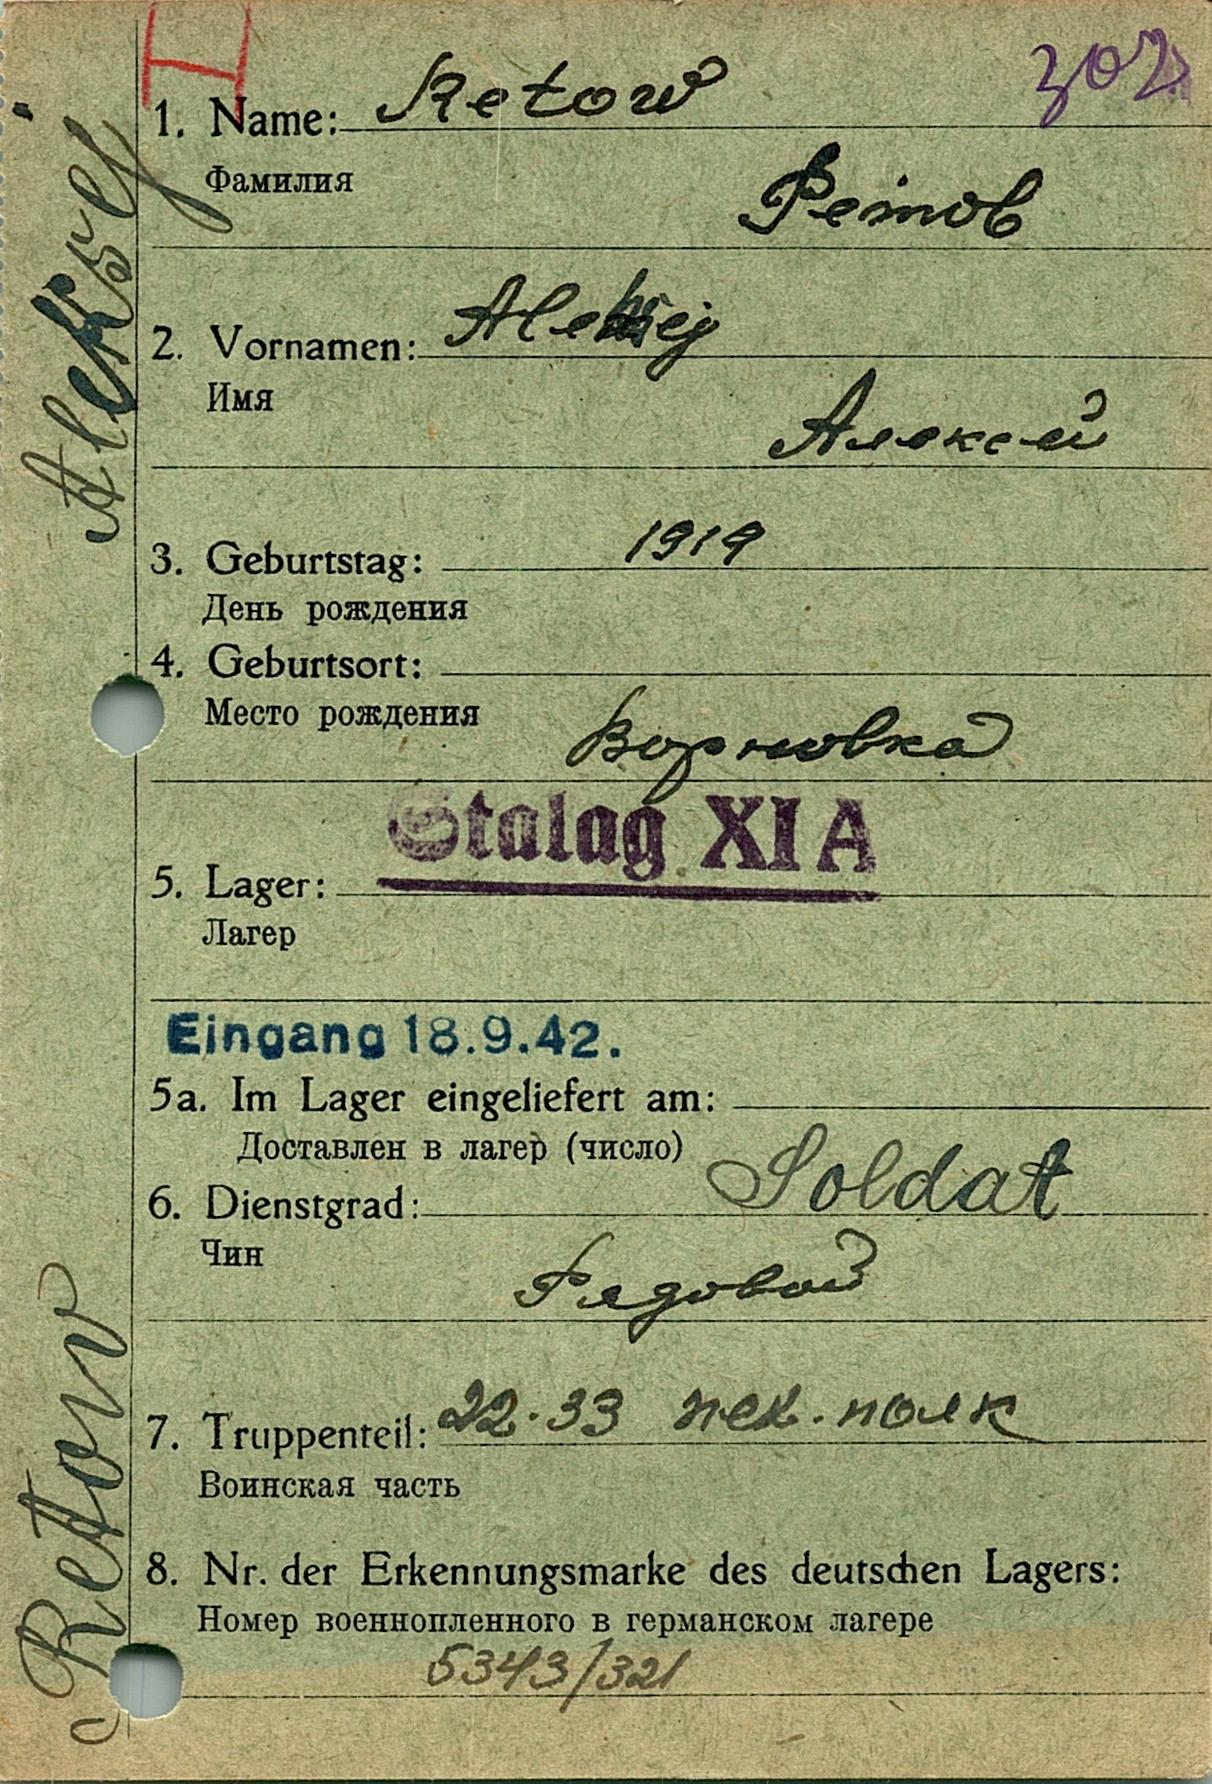 302
1. Name: Retow
Фамилия
Ретов
2. Vornamen: Aleksej
Имя
Алексей
3. Geburtstag: 1919
День рождения
4. Geburtsort:
Место рождения
Ворновка
Stalag XI A
5. Lager:
Лагер
Eingang 18.9.42.
5a. Im Lager eingeliefert am:
Доставлен в лагер (число)
6. Dienstgrad: Soldat
Чин
Рядовой
7. Truppenteil: 22.33 пех. полк
Воинская часть
8. Nr. der Erkennungsmarke des deutschen Lagers:
Номер военнопленного в германском лагере
5343/321
Retow Aleksej